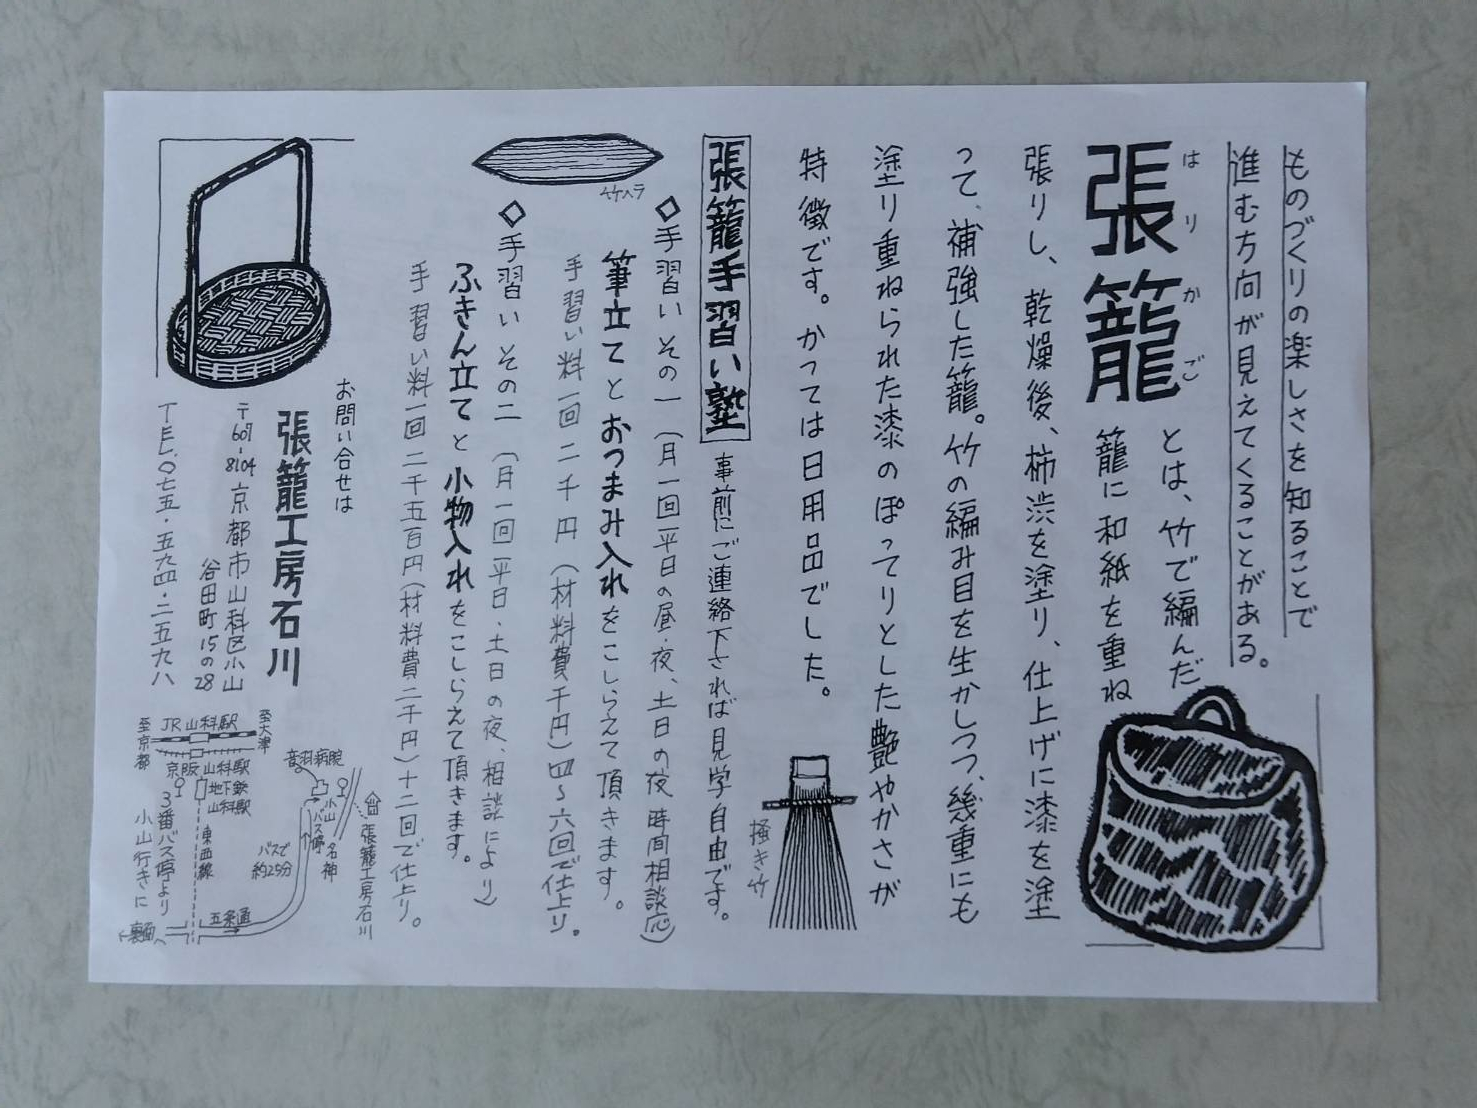 ものづくりの楽しさを知ることで
進む方向が見えてくることがある。
張籠
はりかご
とは、竹で編んだ
籠に和紙を重ね
張りし、乾燥後、柿渋を塗り、仕上げに漆を塗
って、補強した籠。竹の編み目を生かしつつ、幾重にも
塗り重ねられた漆のぽってりとした艶やかさが
特徴です。かつては日用品でした。
掻き竹
張籠手習い塾
事前にご連絡下されば見学自由です。
竹ヘラ
◇手習いその一(月一回平日の昼・夜、土日の夜 時間相談応)
筆立てとおつまみ入れをこしらえて頂きます。
手習い料一回二千円(材料費千円)四〜六回で仕上り。
◇手習いその二(月一回平日、土日の夜、相談により)
ふきん立てと小物入れをこしらえて頂きます。
手習い料一回二千五百円(材料費二千円)十二回で仕上り。
お問い合せは
張籠工房石川
〒607-8104 京都市山科区小山
谷田町15の28
TEL.〇七五・五九四・二五九八
至大津
JR山科駅
至京都
京阪山科駅
地下鉄山科駅
東西線
3番バス停より
小山行きに
音羽病院
小山バス停
名神
張籠工房石川
バスで
約25分
五条通